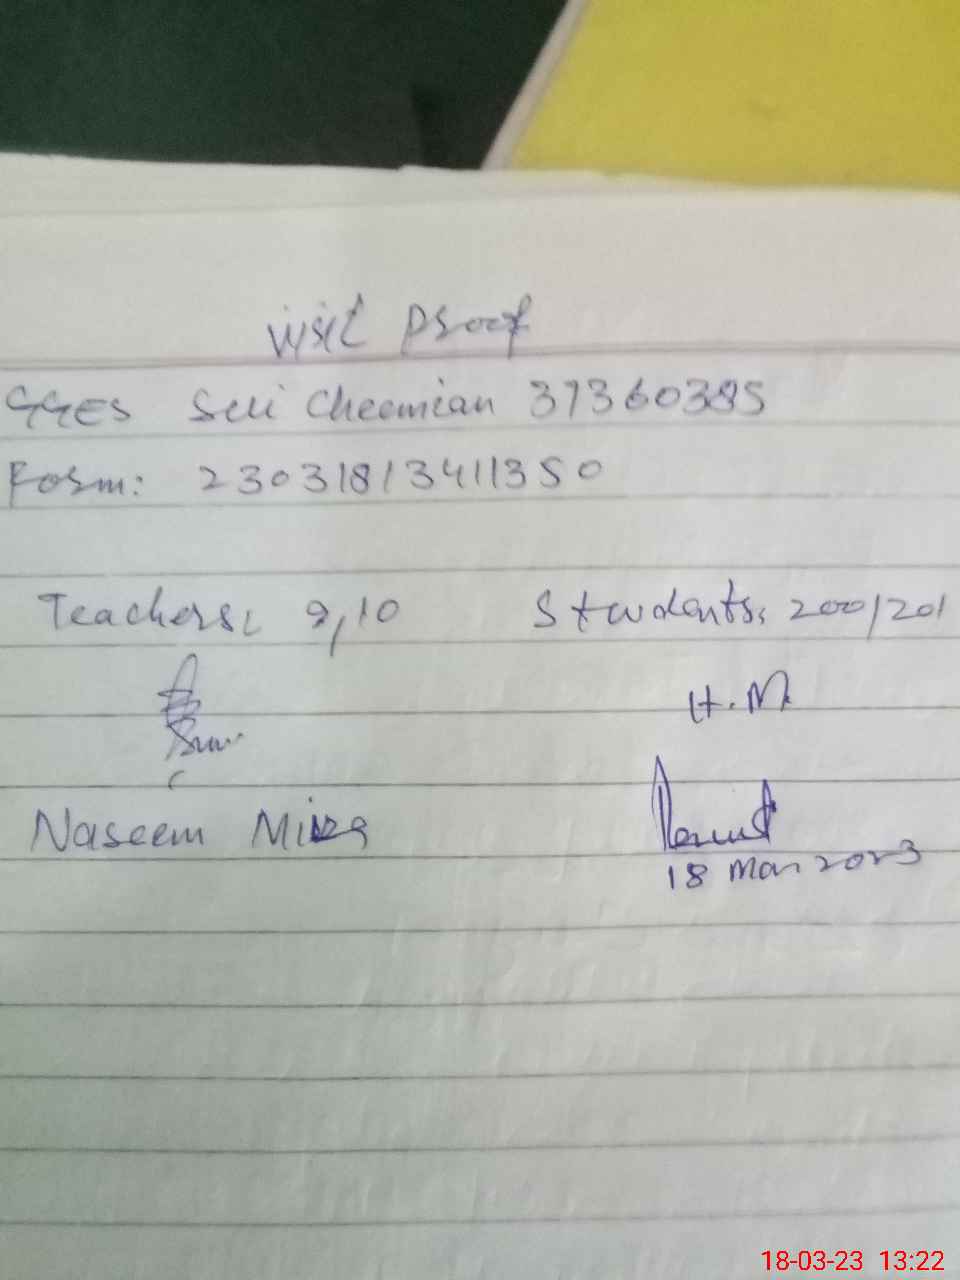 Visit Proof
GGES Seri Cheemian 37360385
Form: 23031813411350
Teachers: 9,10 Students: 200/201
H.M
Naseem Mirza
18 Mar 2023
18-03-23 13:22